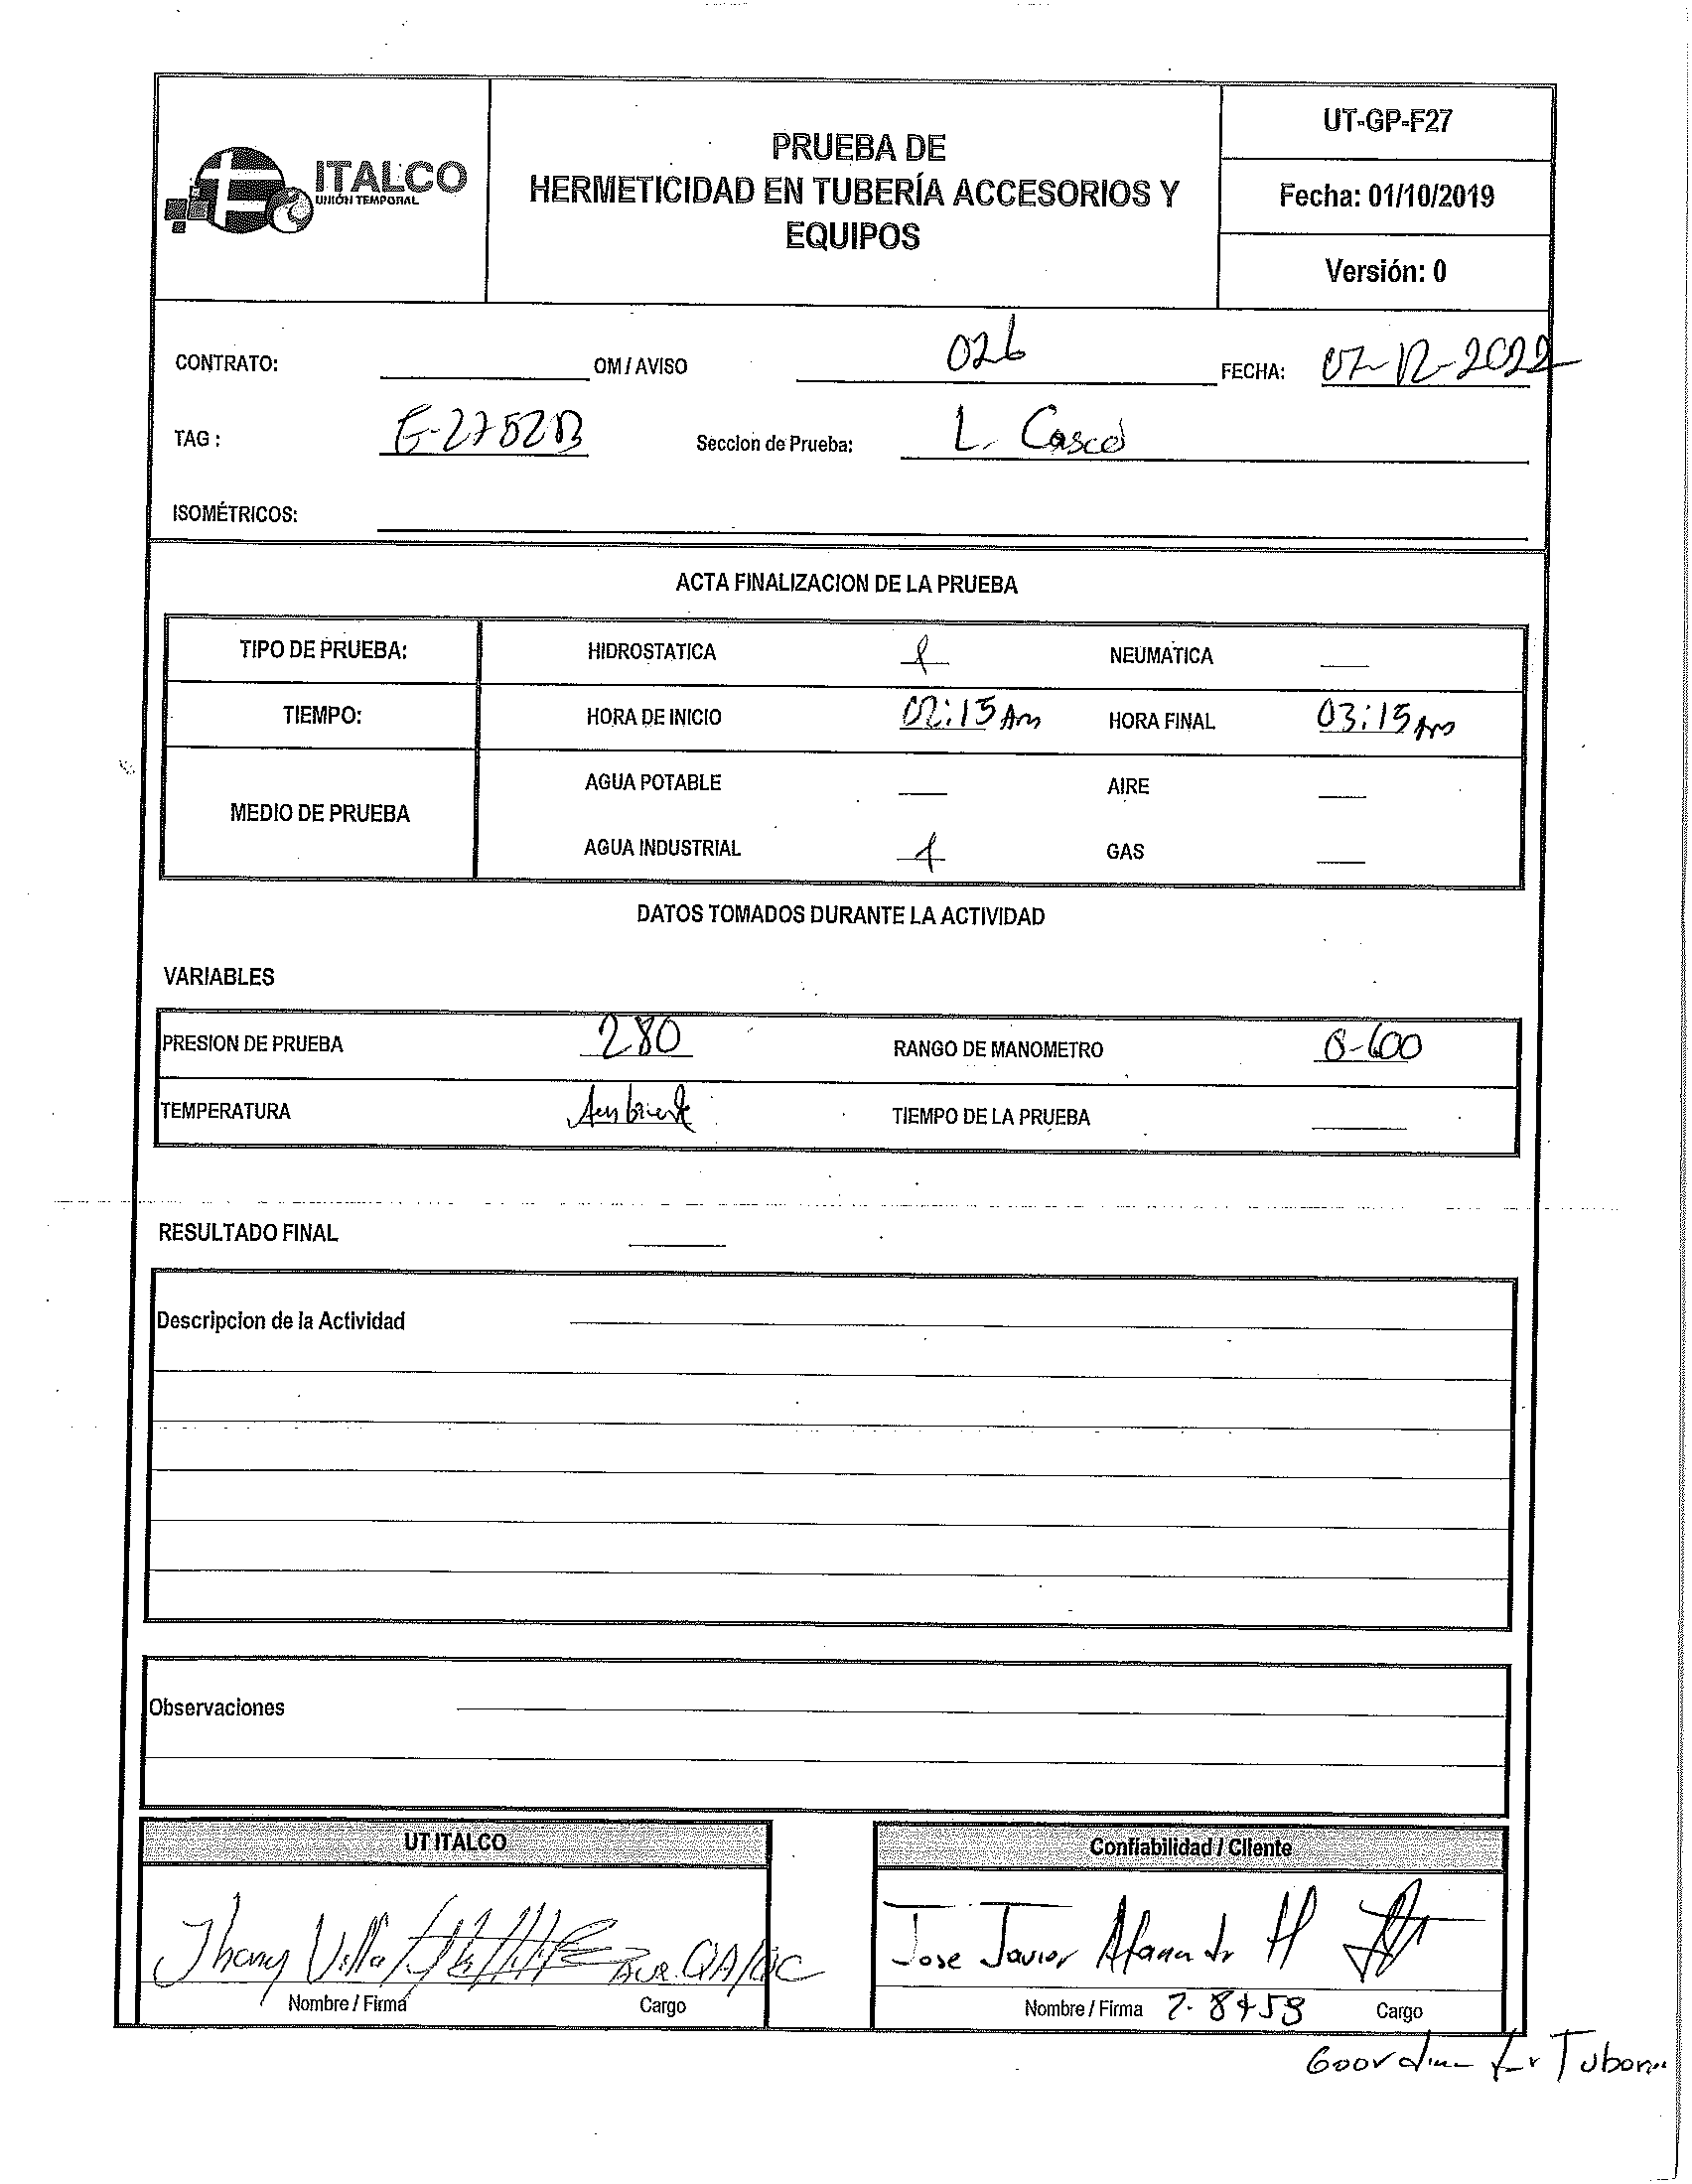 ITALCO
UNIÓN TEMPORAL
PRUEBA DE
HERMETICIDAD EN TUBERÍA ACCESORIOS Y
EQUIPOS
UT-GP-F27
Fecha: 01/10/2019
Versión: 0
CONTRATO: OM / AVISO 026 FECHA: 07-12-2022
TAG : E-2752B Seccion de Prueba: L. Casco
ISOMÉTRICOS:
ACTA FINALIZACION DE LA PRUEBA
TIPO DE PRUEBA: HIDROSTATICA NEUMATICA
TIEMPO: HORA DE INICIO 02:15 Am HORA FINAL 03:15 Am
MEDIO DE PRUEBA
AGUA POTABLE AIRE
AGUA INDUSTRIAL GAS
DATOS TOMADOS DURANTE LA ACTIVIDAD
VARIABLES
PRESION DE PRUEBA 280 RANGO DE MANOMETRO 0-600
TEMPERATURA Ambiente TIEMPO DE LA PRUEBA
RESULTADO FINAL
Descripcion de la Actividad
Observaciones
UT ITALCO
Jhony Villa QA/QC
Nombre / Firma Cargo
Confiabilidad / Cliente
Jose Javier H
Nombre / Firma Cargo